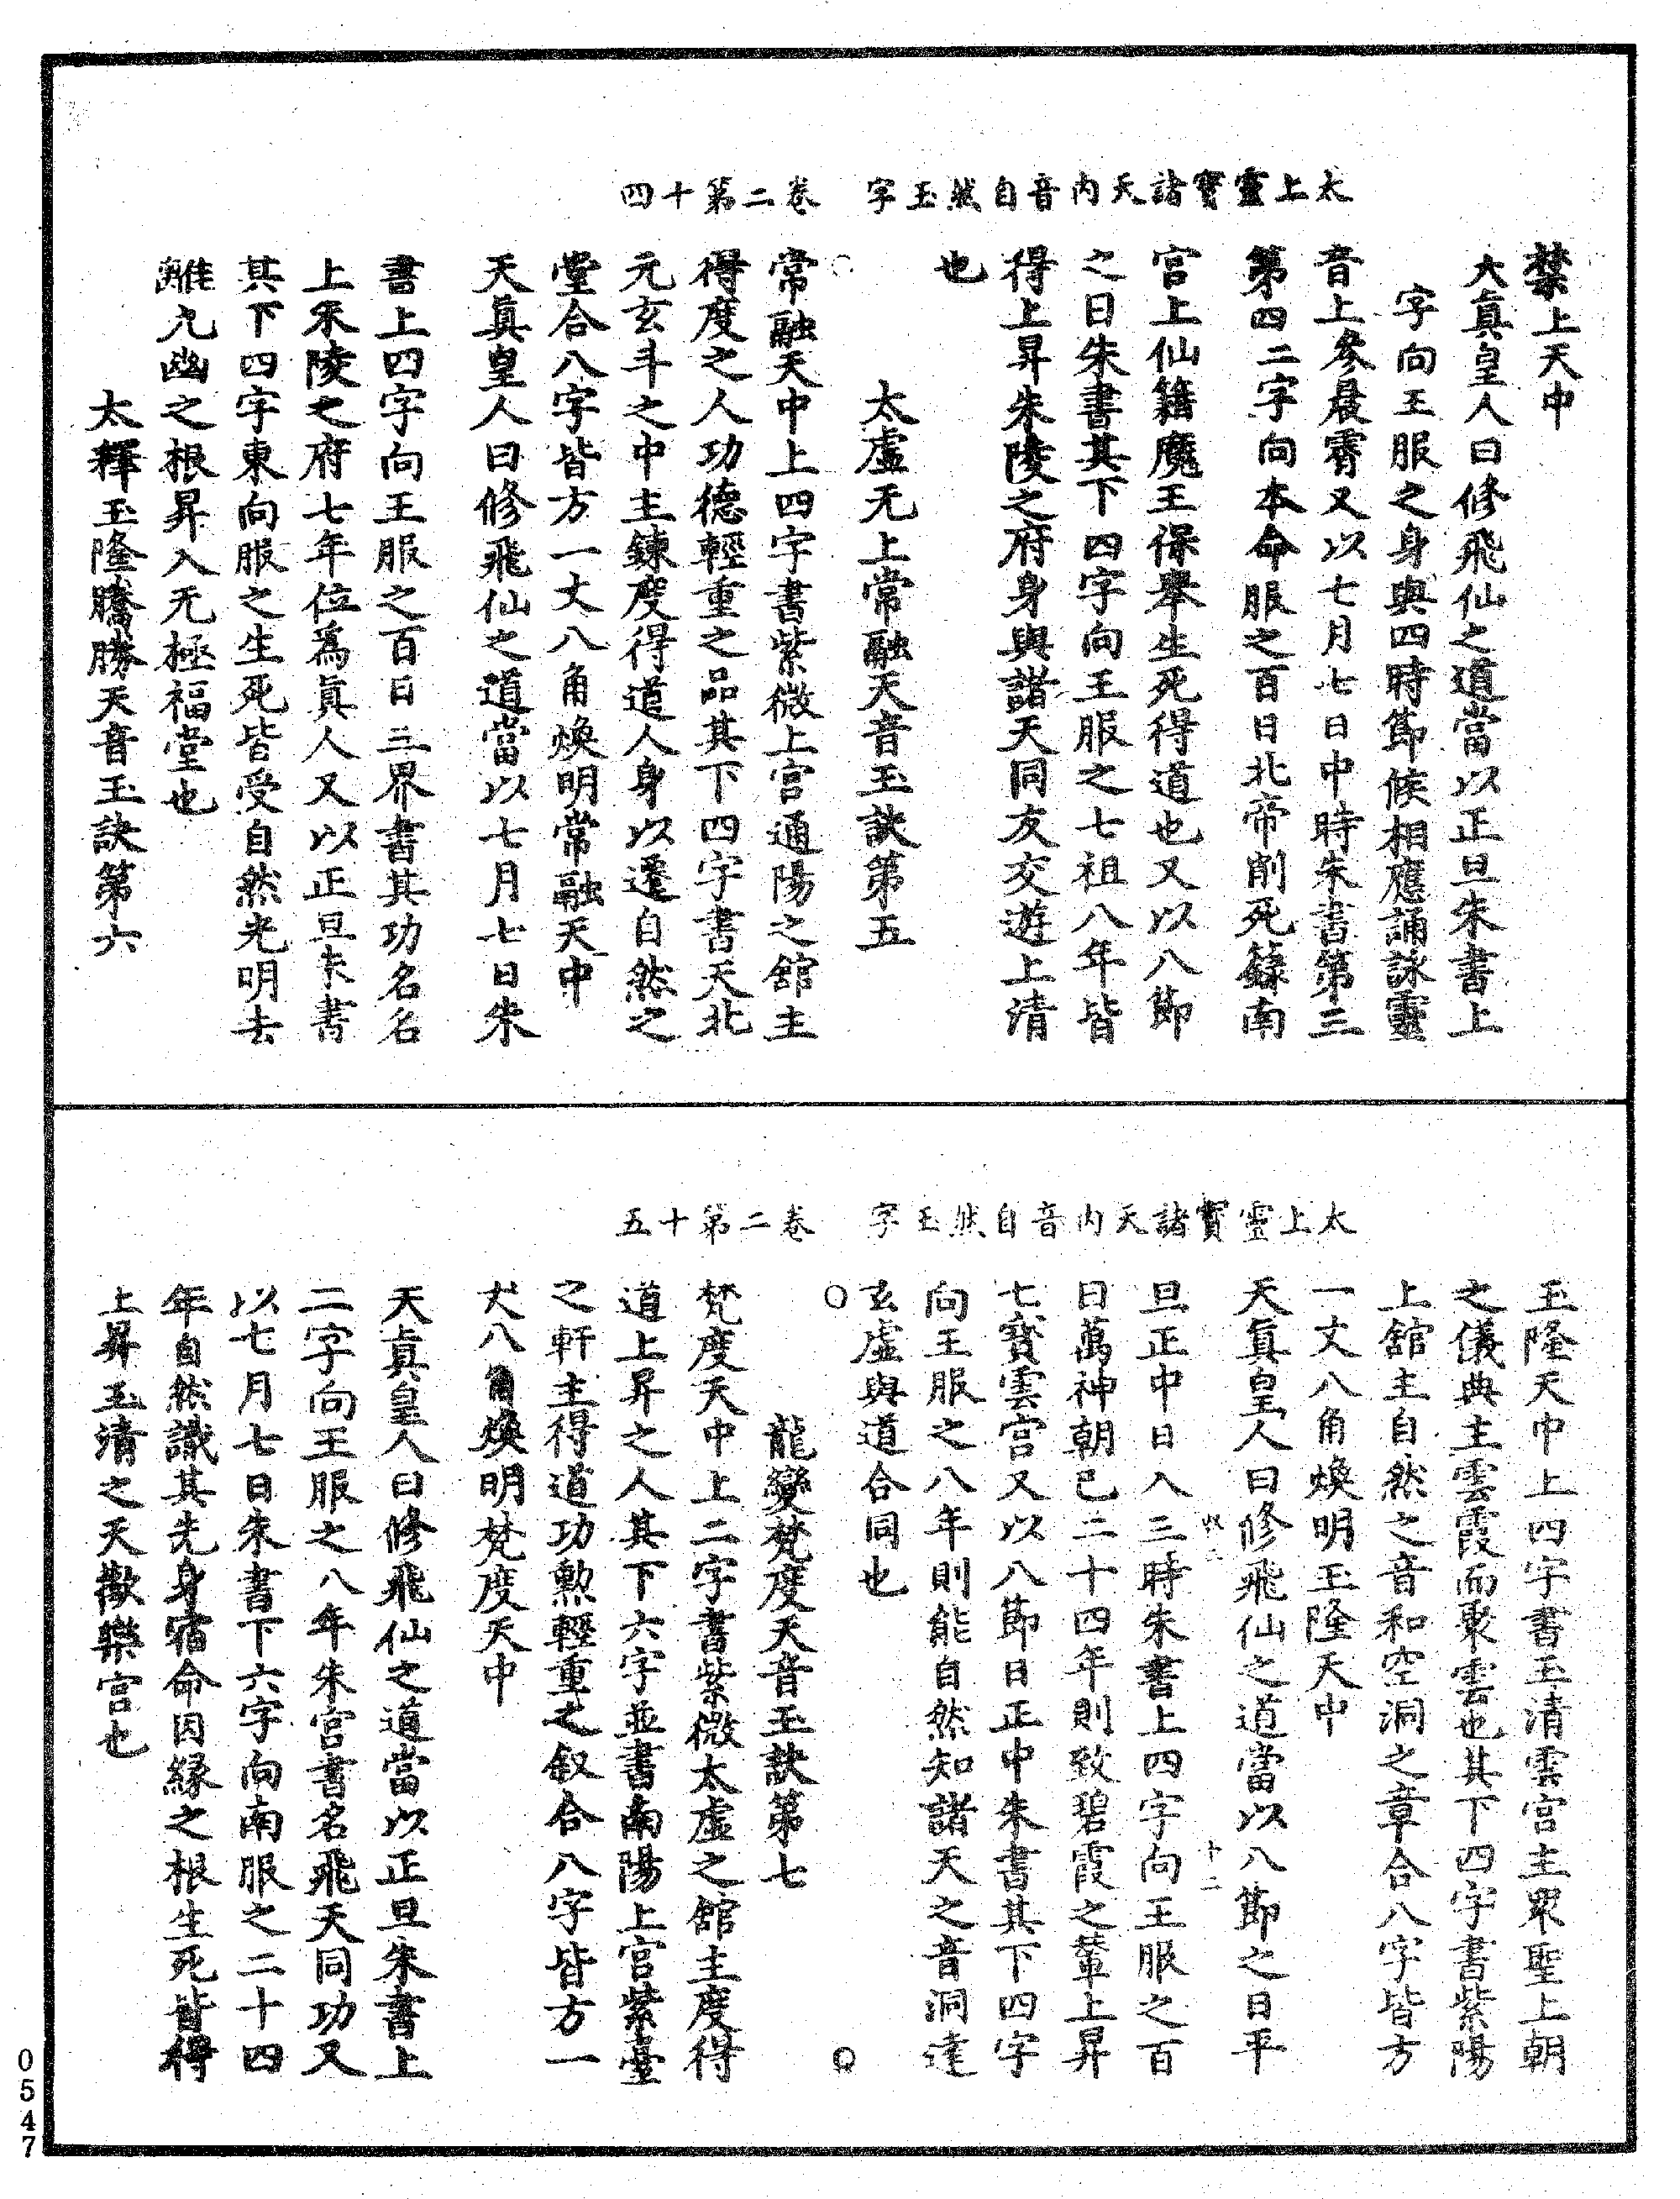 太上靈寶諸天內音自然玉字　卷二第十四
禁上天中
大真皇人曰修飛仙之道當以正旦朱書上
字向王服之身與四時節候相應誦詠靈
音上參晨霄又以七月七日中時朱書第三
第四二字向本命服之百日北帝削死籙南
宮上仙籍魔王保舉生死得道也又以八節
之日朱書其下四字向王服之七祖八年皆
得上昇朱陵之府身與諸天同友交遊上清
也
太虛无上常融天音玉訣第五
常融天中上四字書紫微上宮通陽之舘主
得度之人功德輕重之品其下四字書天北
元玄斗之中主鍊度得道人身以遷自然之
堂合八字皆方一丈八角煥明常融天中
天真皇人曰修飛仙之道當以七月七日朱
書上四字向王服之百日三界書其功名名
上朱陵之府七年位為真人又以正旦朱書
其下四字東向服之生死皆受自然光明去
離九幽之根昇入无極福堂也
太釋玉隆騰勝天音玉訣第六
太上靈寶諸天內音自然玉字　卷二第十五
玉隆天中上四字書玉清雲宮主眾聖上朝
之儀典主雲霞而聚雲也其下四字書紫陽
上舘主自然之音和空洞之章合八字皆方
一丈八角煥明玉隆天中
天真皇人曰修飛仙之道當以八節之日平
十二
旦正中日入三時朱書上四字向王服之百
日萬神朝已二十四年則致碧霞之輦上昇
七寶雲宮又以八節日正中朱書其下四字
向王服之八年則能自然知諸天之音洞達
玄虛與道合同也
龍變梵度天音玉訣第七
梵度天中上二字書紫微太虛之舘主度得
道上昇之人其下六字並書南陽上宮紫臺
之軒主得道功勲輕重之叙合八字皆方一
丈八角煥明梵度天中
天真皇人曰修飛仙之道當以正旦朱書上
二字向王服之八年朱宮書名飛天同功又
以七月七日朱書下六字向南服之二十四
年自然識其先身宿命因緣之根生死皆得
上昇玉清之天歡樂宮也
0547